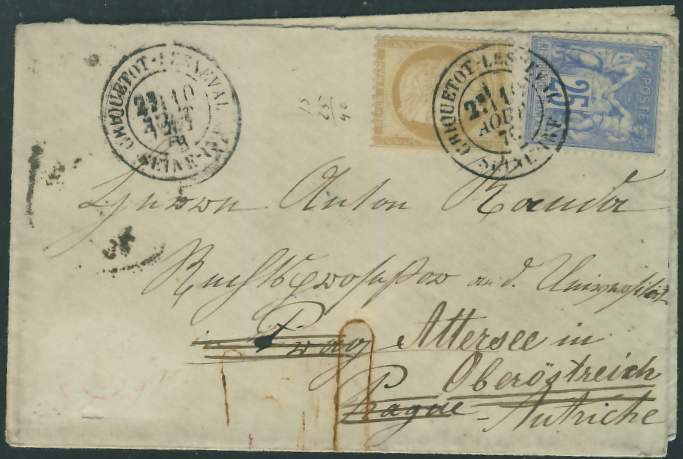 CRIQUETOT-LESNEVAL
2E
10
AOUT
SEINE-INF
15
25
40
CRIQUETOT-LESNEVAL
2E
AOUT
SEINE-INF
25
POSTE
Herrn Anton Randa
Rechtsprofessor an d. Universität
in Prag Attersee in
Oberöstreich
Prague - Autriche